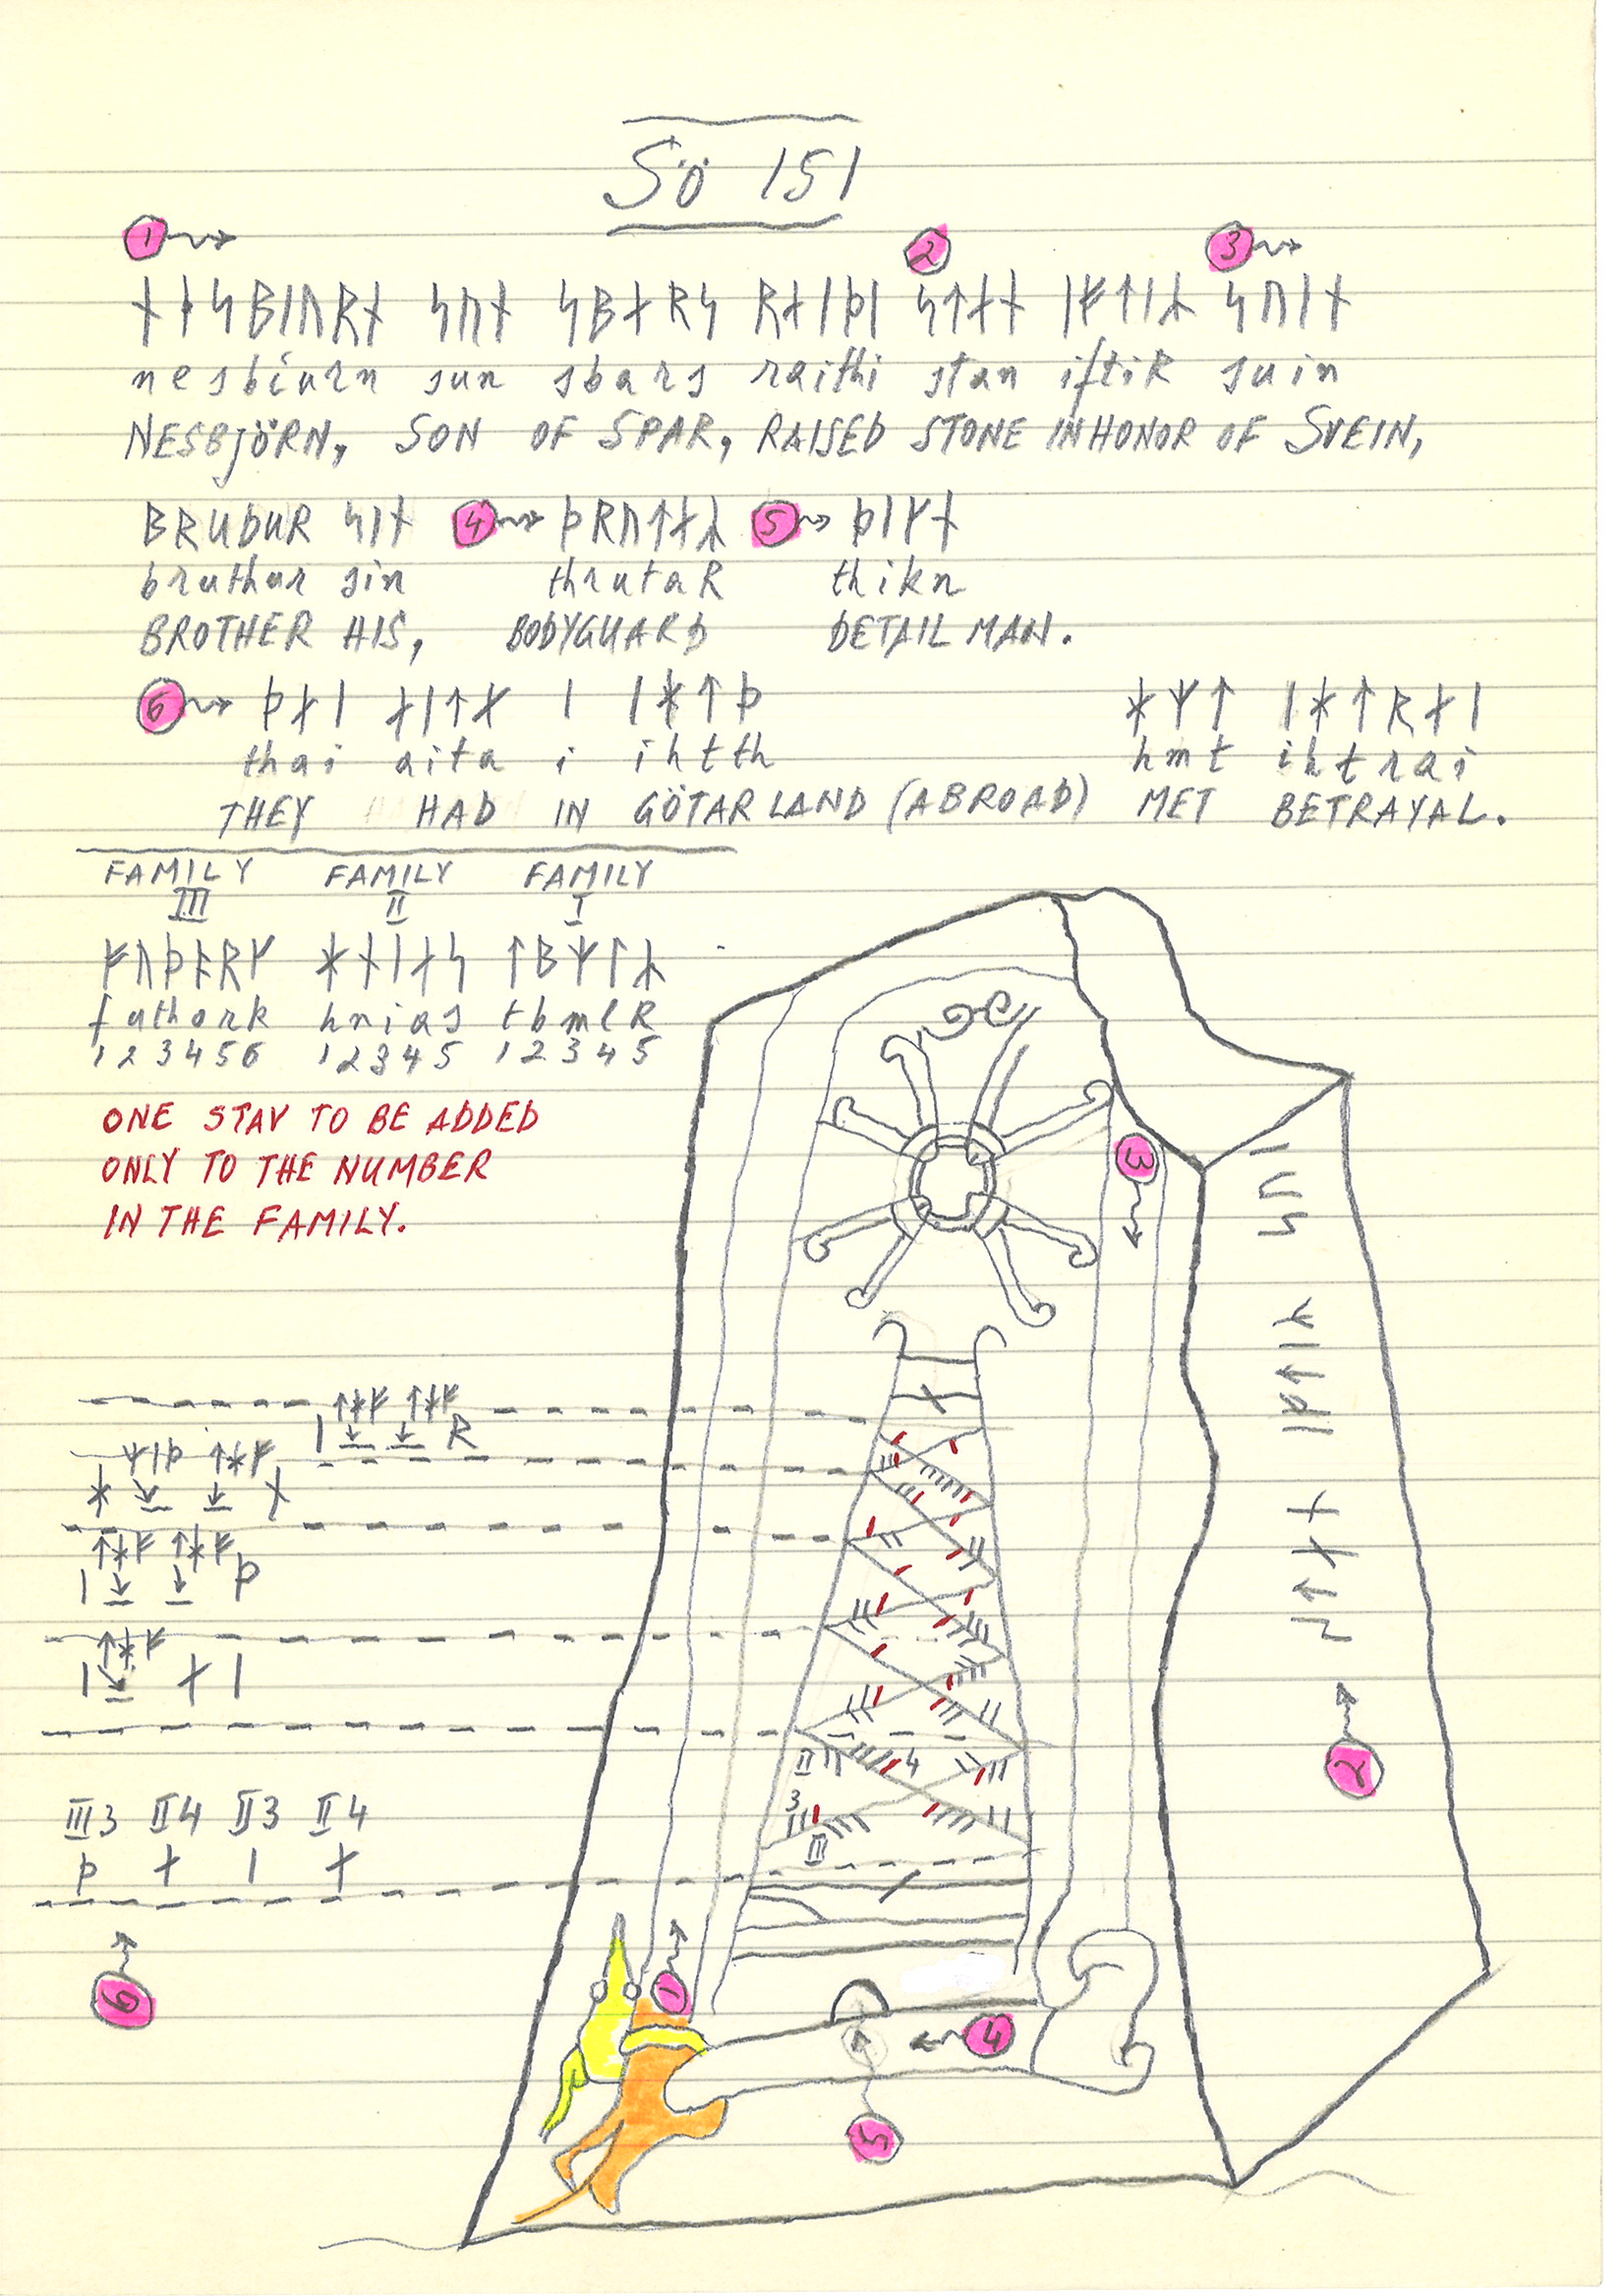 Sö 151
1 2 3
ᚾᚽᛋᛒᛁᚢᚱᚾ ᛋᚢᚾ ᛋᛒᛅᚱᛋ ᚱᛅᛁᚦᛁ ᛋᛏᛅᚾ ᛁᚠᛏᛁᛦ ᛋᚢᛁᚾ
nesbiurn sun sbars raithi stan iftiR suin
NESBJÖRN, SON OF SPAR, RAISED STONE IN HONOR OF SVEIN,
ᛒᚱᚢᚦᚢᚱ ᛋᛁᚾ 4 ᚦᚱᚢᛏᛅᛦ 5 ᚦᛁᚴᚾ
bruthur sin thrutaR thikn
BROTHER HIS, BODYGUARD DETAIL MAN.
6 ᚦᛅᛁ ᛅᛁᛏᛅ ᛁ ᛁᚼᛏᚦ ᚼᛘᛏ ᛁᚼᛏᚱᛅᛁ
thai aita i ihtth hmt ihtrai
THEY HAD IN GÖTARLAND (ABROAD) MET BETRAYAL.
FAMILY FAMILY FAMILY
III II I
ᚠᚢᚦᚬᚱᚴ ᚼᚾᛁᛅᛋ ᛏᛒᛘᛚᛦ
futhork hnias tbmlR
1 2 3 4 5 6 1 2 3 4 5 1 2 3 4 5
ONE STAV TO BE ADDED
ONLY TO THE NUMBER
IN THE FAMILY.
3
ᛋᚢᛁ
ᛁᚠᛏᛁᛦ
ᛋᛏᛅᚾ
ᛏᚼᚠ ᛏᚼᚠ
ᛁ ᚱ
ᛘᛁᚦ ᛏᚼᚠ
ᚼ ᚾ
ᛏᚼᚠ ᛏᚼᚠ
ᛁ ᚦ
ᛏᚼᚠ
ᛁ ᛅ ᛁ
II 4
3
III
2
III3 II4 II3 II4
ᚦ ᛅ ᛁ ᛅ
6 1 4
5